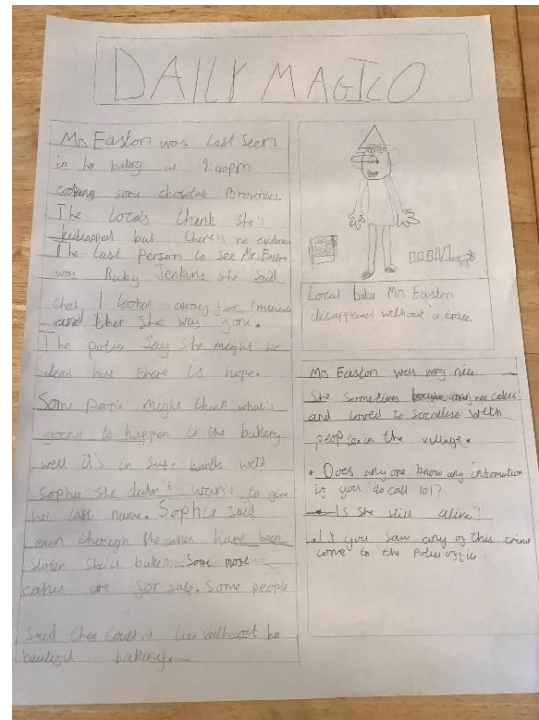 DAILY MAGICO
Mrs Easton was last seen
in her bakery at 9:00pm
cooking some chocolate Brownies.
The locals think she's
kidnapped but there is no
The last person to see Mrs Easton
was Ruby Jenkins she said
that I looked away for 1 minute
and then she was gone.
The police say she might be
dead but there is hope.
Some people might think what's
going to happen to the bakery
well it's in safe hands with
Sophie she didn't want to give
her last name. Sophie said
even though the cakes have been
stolen she's baked some more
cakes are for sale. Some people
said they could not live without her
beautiful baking.
Local baker Mrs Easton
disappeared without a trace.
Mrs Easton was very nice
She sometimes cakes
and loved to socalise with
people in the village.
• Does anyone know any information
if you do call 101?
• Is she still alive?
• If you saw any of this crime
come to the police office.